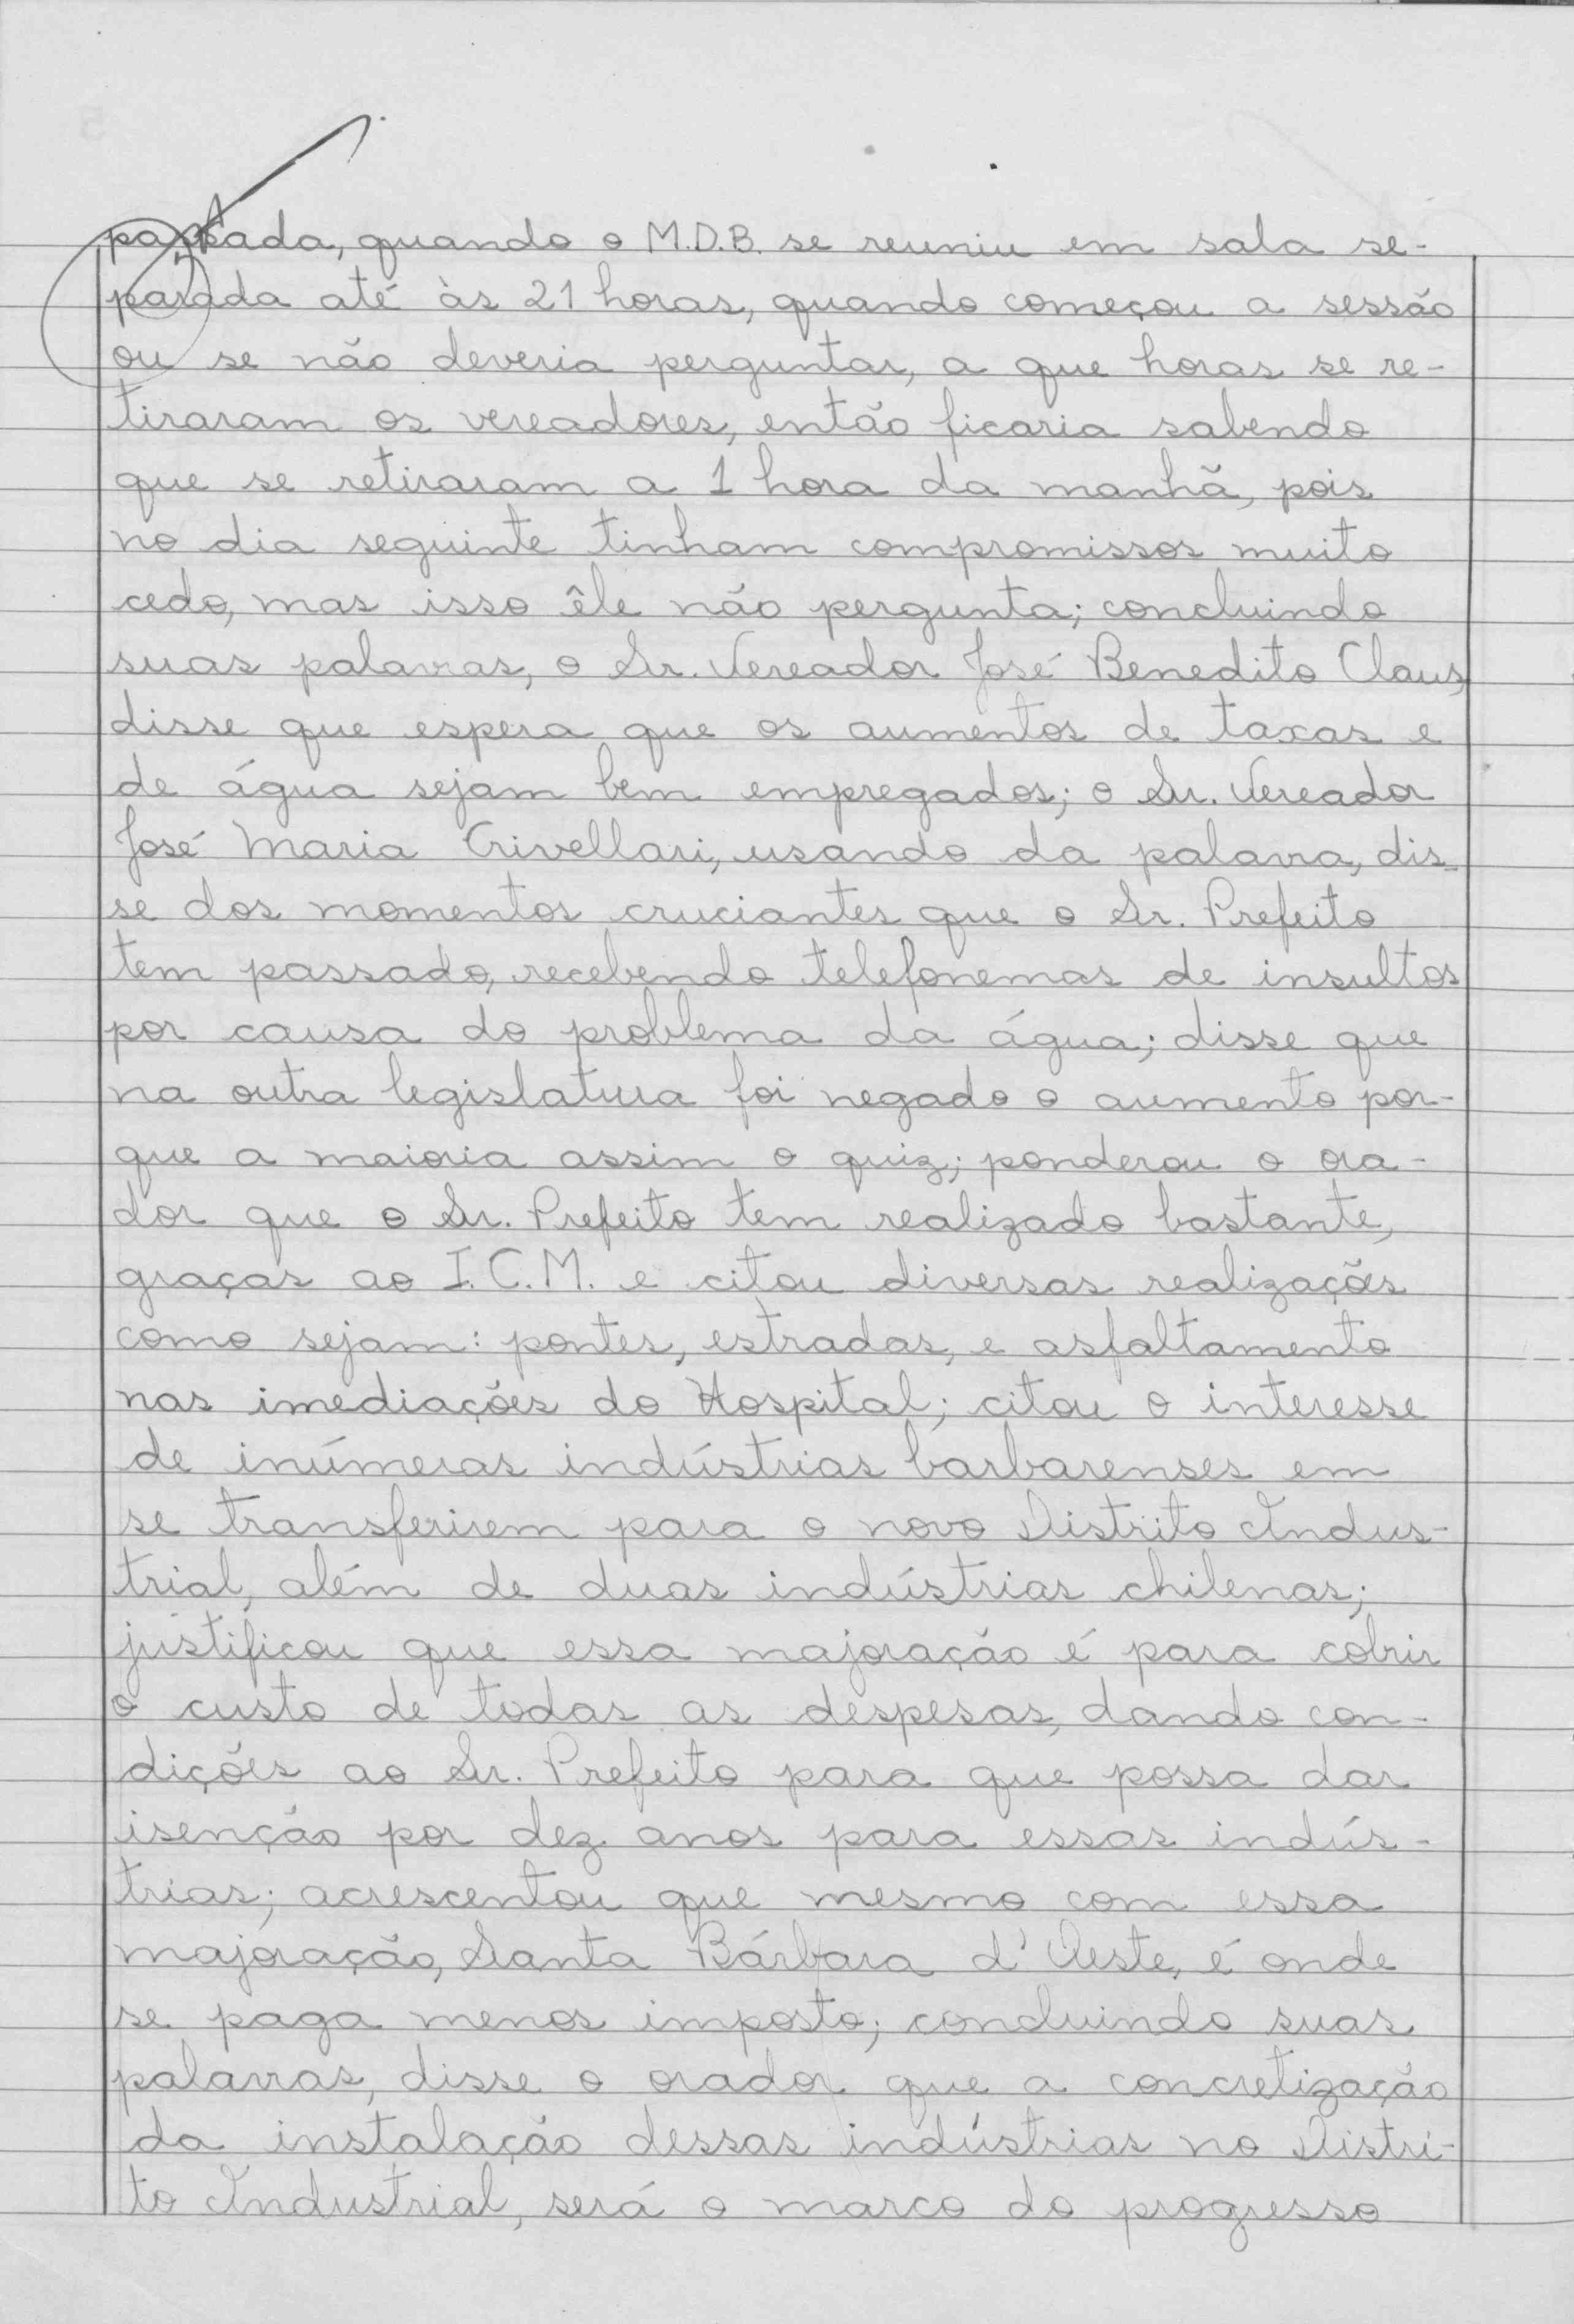 passada, quando o M.D.B. se reuniu em sala se-
parada até às 21 horas, quando começou a sessão
ou se não deveria perguntar, a que horas se re-
tiraram os vereadores, então ficaria sabendo
que se retiraram a 1 hora da manhã, pois
no dia seguinte tinham compromissos muito
cedo, mas isso êle não pergunta; concluindo
suas palavras, o Sr. Vereador José Benedito Claus,
disse que espera que os aumentos de taxas e
de água sejam bem empregados; o Sr. Vereador
José Maria Crivellari, usando da palavra, dis-
se dos momentos cruciantes que o Sr. Prefeito
tem passado, recebendo telefonemas de insultos
por causa do problema da água; disse que
na outra legislatura foi negado o aumento por-
que a maioria assim o quiz; ponderou o ora-
dor que o Sr. Prefeito tem realizado bastante,
graças ao I.C.M. e citou diversas realizações
como sejam: pontes, estradas, e asfaltamento
nas imediações do Hospital; citou o interesse
de inúmeras indústrias barbarenses em
se transferirem para o novo Distrito Indus-
trial, além de duas indústrias chilenas;
justificou que essa majoração é para cobrir
o custo de todas as despesas, dando con-
dições ao Sr. Prefeito para que possa dar
isenção por dez anos para essas indús-
trias; acrescentou que mesmo com essa
majoração, Santa Bárbara d'Oeste, é onde
se paga menos imposto; concluindo suas
palavras, disse o orador que a concretização
da instalação dessas indústrias no Distri-
to Industrial, será o marco do progresso